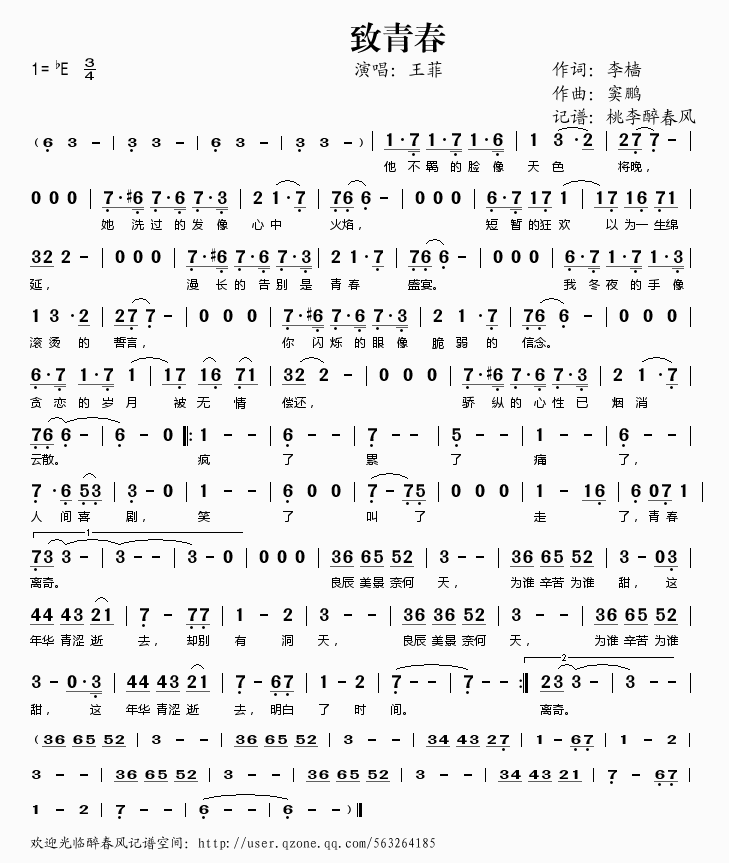 致青春
1= ♭E 3/4 演唱：王菲 作词：李樯
作曲：窦鹏
记谱：桃李醉春风
( 6 3 - | 3 3 - | 6 3 - | 3 3 - ) | 1·7 1·7 1·6 | 1 3 ·2 | 27 7 - |
他 不 羁 的 脸 像 天 色 将晚，
0 0 0 | 7·#6 7·6 7·3 | 2 1·7 | 76 6 - | 0 0 0 | 6·7 17 1 | 17 16 71 |
她 洗 过 的 发 像 心 中 火焰， 短 暂 的狂 欢 以 为一 生绵
32 2 - | 0 0 0 | 7·#6 7·6 7·3 | 2 1·7 | 76 6 - | 0 0 0 | 6·7 1·7 1·3 |
延， 漫 长 的 告 别 是 青 春 盛宴。 我 冬 夜 的 手 像
1 3 ·2 | 27 7 - | 0 0 0 | 7·#6 7·6 7·3 | 2 1 ·7 | 76 6 - | 0 0 0 |
滚 烫 的 誓言， 你 闪 烁 的 眼 像 脆 弱 的 信念。
6·7 1·7 1 | 17 16 71 | 32 2 - | 0 0 0 | 7·#6 7·6 7·3 | 2 1 ·7 |
贪 恋 的 岁 月 被 无 情 偿还， 骄 纵 的 心 性 已 烟 消
76 6 - | 6 - 0 |: 1 - - | 6 - - | 7 - - | 5 - - | 1 - - | 6 - - |
云散。 疯 了 累 了 痛 了，
7 ·6 53 | 3 - 0 | 1 - - | 6 0 0 | 7 - 75 | 0 0 0 | 1 - 16 | 6 07 1 |
人 间 喜 剧， 笑 了 叫 了 走 了，青 春
1
73 3 - | 3 - 3 | 3 - 0 | 0 0 0 | 36 65 52 | 3 - - | 36 65 52 | 3 - 03 |
离奇。 良辰 美景 奈何 天， 为谁 辛苦 为谁 甜， 这
44 43 21 | 7 - 77 | 1 - 2 | 3 - - | 36 36 52 | 3 - - | 36 65 52 |
年华 青涩 逝 去， 却别 有 洞 天， 良辰 美景 奈何 天， 为谁 辛苦 为谁
2
3 - 0·3 | 44 43 21 | 7 - 67 | 1 - 2 | 7 - - | 7 - - :| 23 3 - | 3 - - |
甜， 这 年华 青涩 逝 去，明白 了 时 间。 离奇。
( 36 65 52 | 3 - - | 36 65 52 | 3 - - | 34 43 27 | 1 - 67 | 1 - 2 |
3 - - | 36 65 52 | 3 - - | 36 65 52 | 3 - - | 34 43 21 | 7 - 67 |
1 - 2 | 7 - - | 6 - - | 6 - - ) ‖
欢迎光临醉春风记谱空间：http://user.qzone.qq.com/563264185